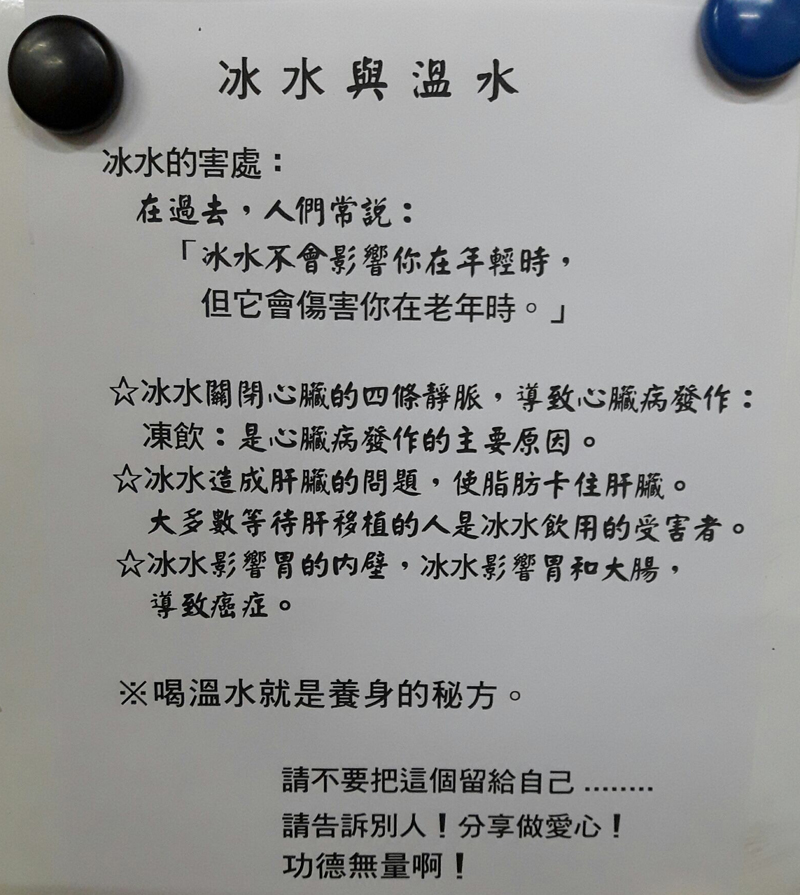 冰水與溫水
冰水的害處：
在過去，人們常說：
「冰水不會影響你在年輕時，
但它會傷害你在老年時。」
☆冰水關閉心臟的四條靜脈，導致心臟病發作：
凍飲：是心臟病發作的主要原因。
☆冰水造成肝臟的問題，使脂肪卡住肝臟。
大多數等待肝移植的人是冰水飲用的受害者。
☆冰水影響胃的內壁，冰水影響胃和大腸，
導致癌症。
※喝溫水就是養身的秘方。
請不要把這個留給自己........
請告訴別人！分享做愛心！
功德無量啊！